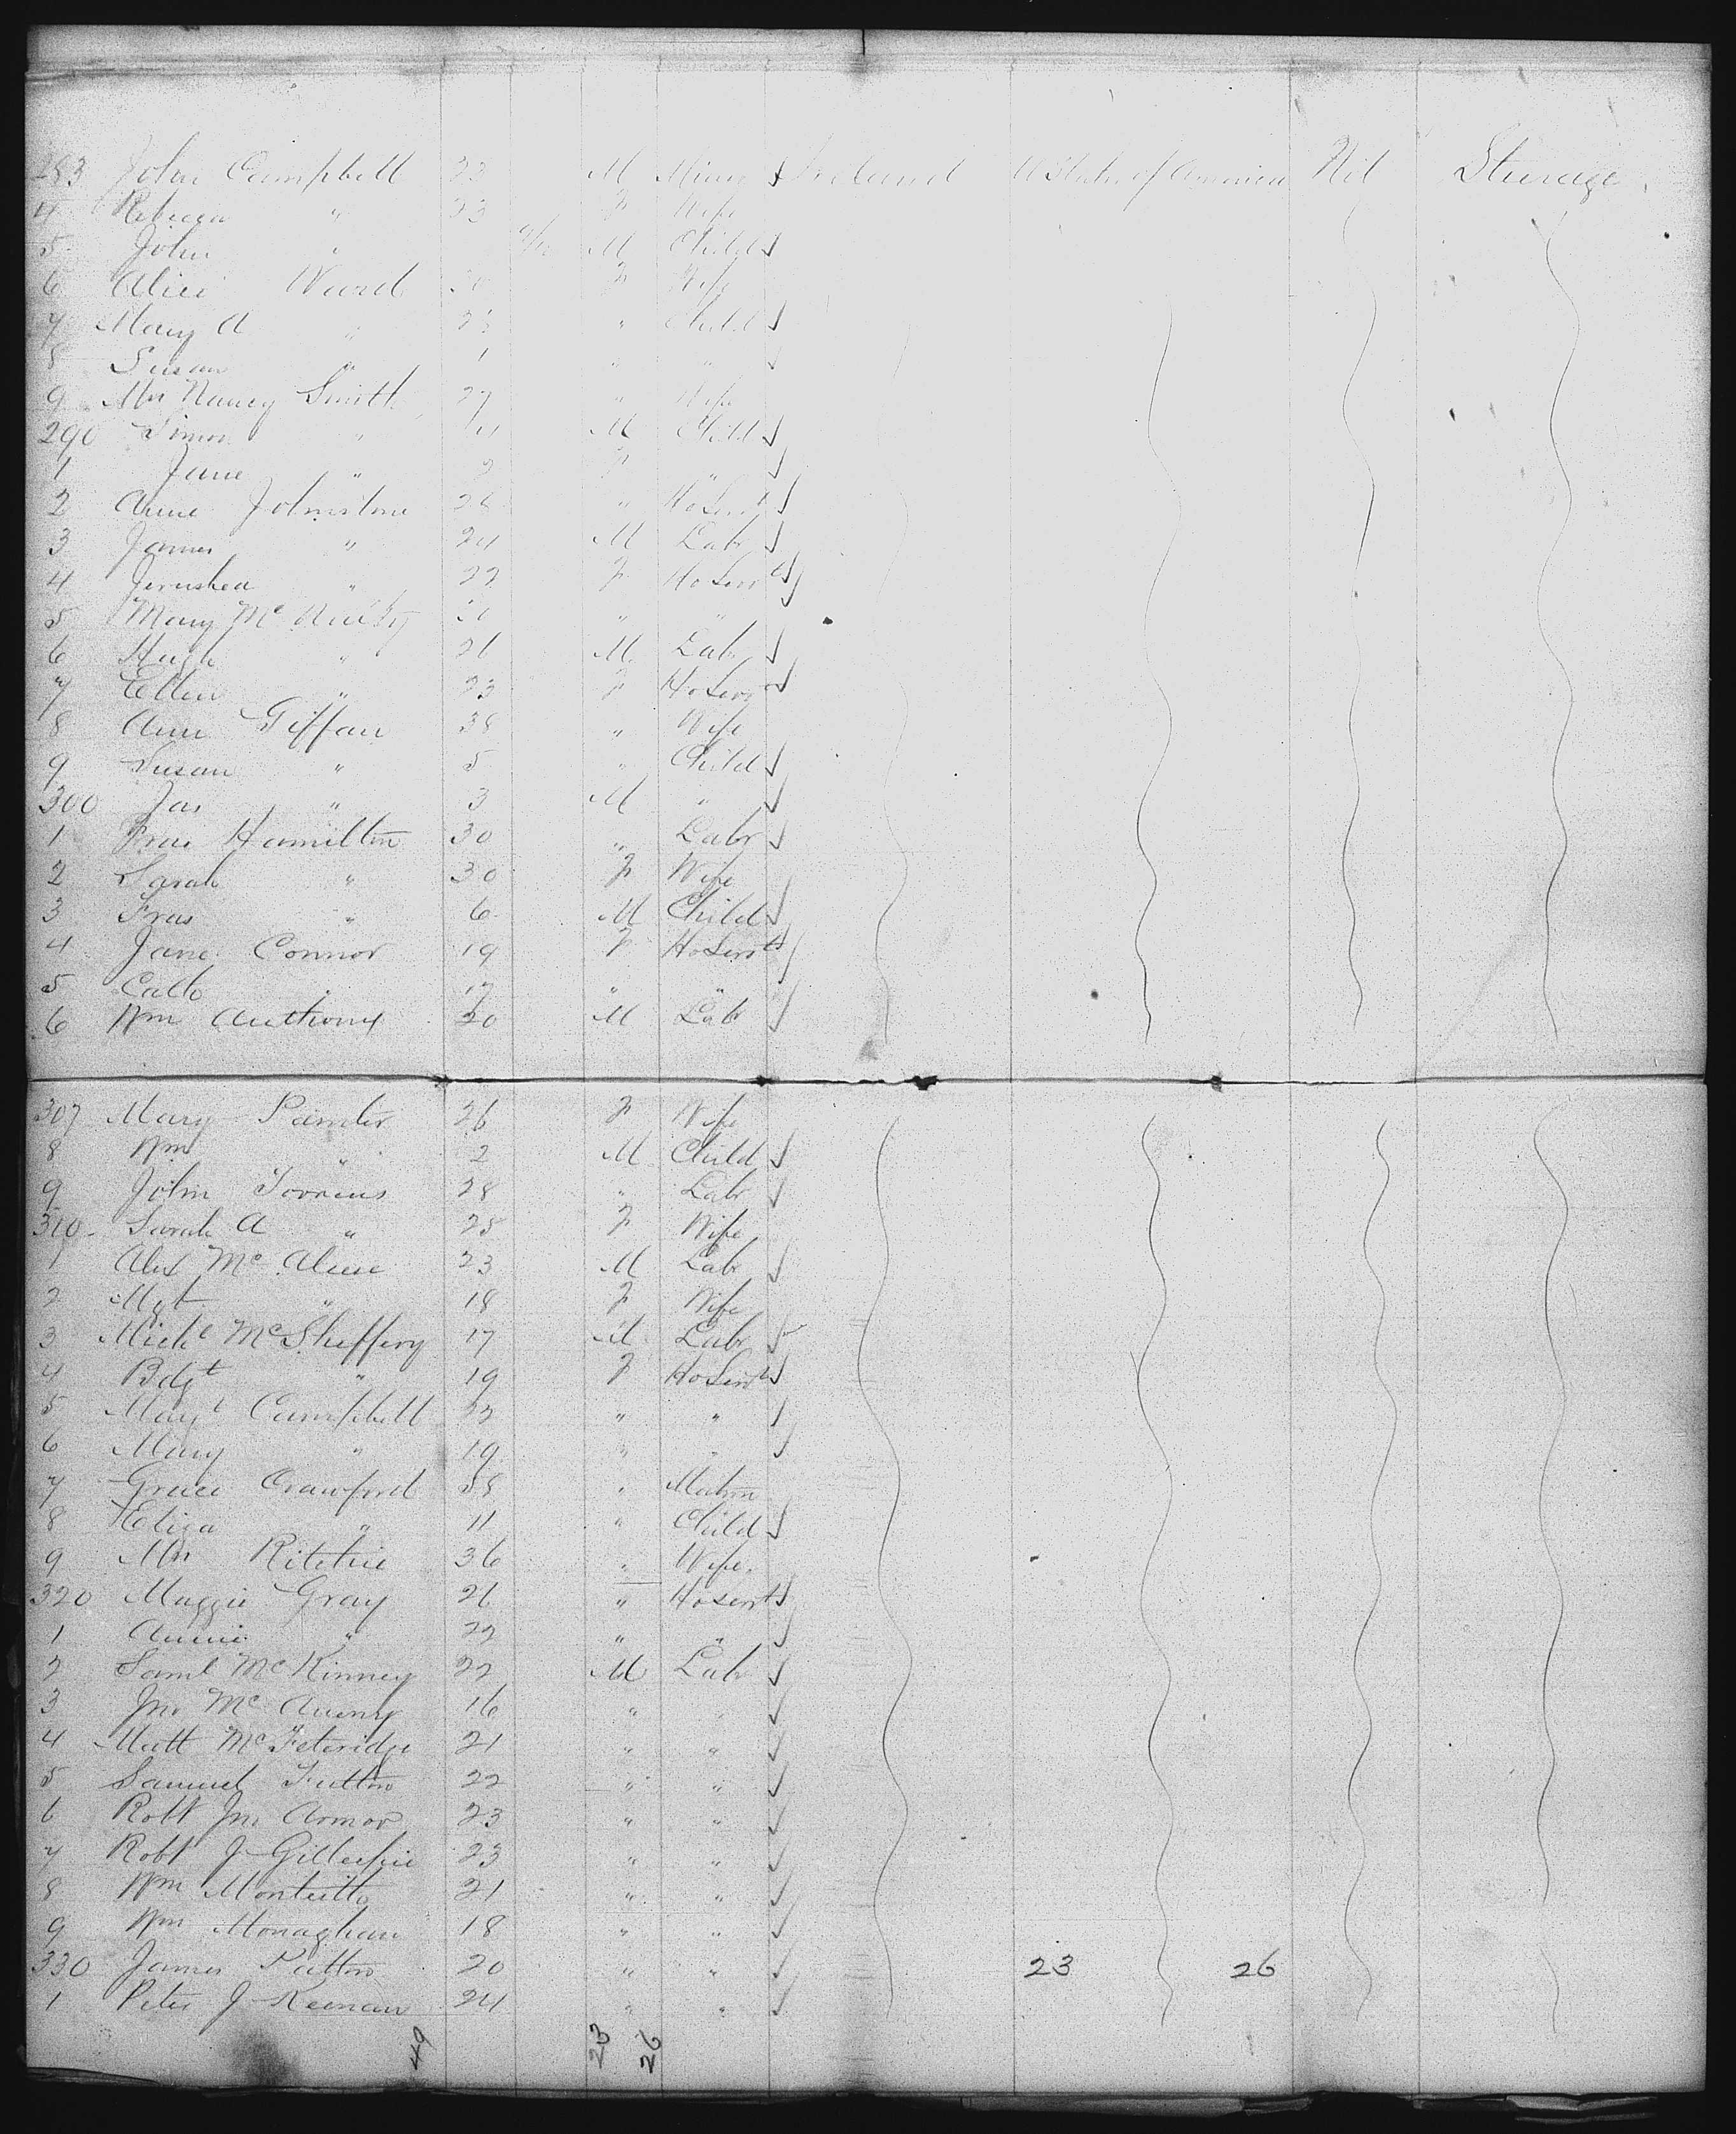 283 John Campbell 23 M Miner Ireland U States of America Nil Steerage
4 Rebecca " 23 F Wife
5 John " M Child
6 Alice Ward F Wife
7 Mary A " " Child
8 Susan " 1 " "
9 Mrs Nancy Smith 27 " Wife
290 Simon " M Child
1 Jane " F "
2 Anne Johnstone 26 " HoServt
3 James " 24 M Labr
4 Jerushea " 22 F HoServt
5 Mary Mc " "
6 Hugh " 26 M Labr
7 Ellen " 23 F HoServt
8 Ann Giffan 38 " Wife
9 Susan " 5 " Child
300 Jas " 3 M "
1 Fras Hamilton 30 " Labr
2 Sarah " 30 F Wife
3 Fras " 6 M Child
4 Jane Connor 19 F HoServt
5 Cath " 17 " "
6 Wm Anthony 20 M Labr
307 Mary Painter 26 F Wife
8 Wm " 2 M Child
9 John Torrens 28 " Labr
310 Sarah A " 25 F Wife
1 Alex Mc Alene 23 M Labr
2 Mgt " 18 F Wife
3 Michl McSheffery 17 M Labr
4 Bdgt " 19 F HoServt
5 Magt Campbell 22 " "
6 Mary " 19 " "
7 Grace Crawford 58 " Matron
8 Eliza " 11 " Child
9 Mrs Ritchie 36 " Wife
320 Maggie Gray 26 " HoServt
1 Annie " 22 " "
2 Saml McKinney 22 M Labr
3 Jno Mc Aveny 16 " "
4 Matt McFeteridge 21 " "
5 Samuel Fulton 22 " "
6 Robt Jno Armor 23 " "
7 Robt J Gillespie 23 " "
8 Wm Monteith 21 " "
9 Wm Monaghan 18 " "
330 James Patton 20 " " 23 26
1 Peter J Keenan 24 " "
49 23 26